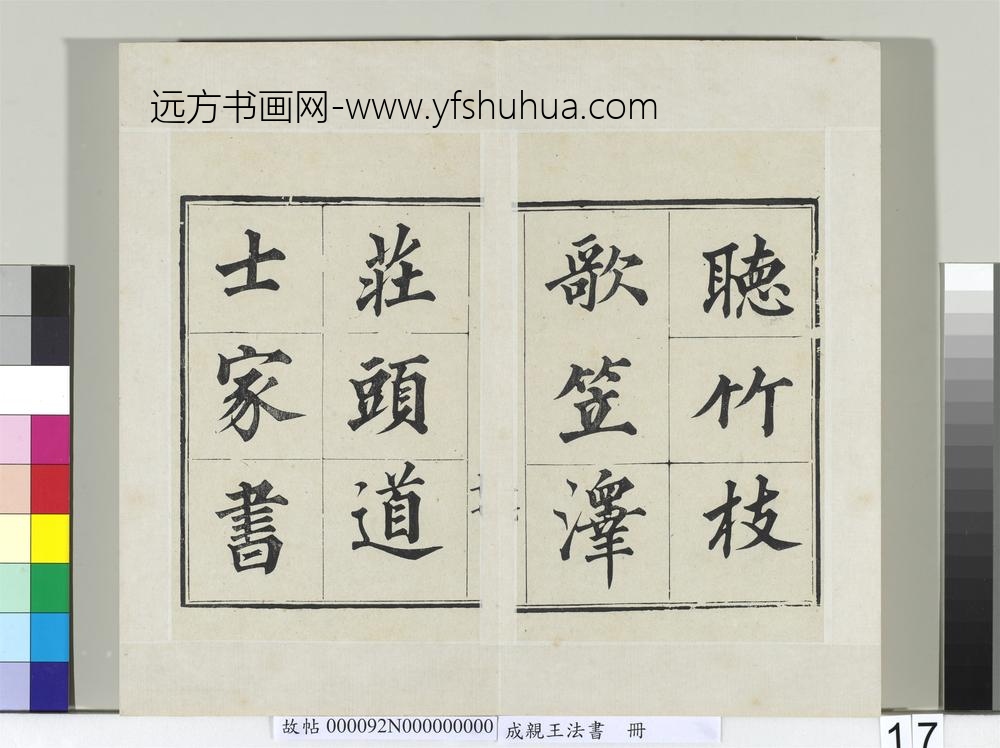 远方书画网-www.yfshuhua.com
聽竹枝
歌笠澤
莊頭道
士家書
故帖 000092N000000000
成親王法書 冊
17